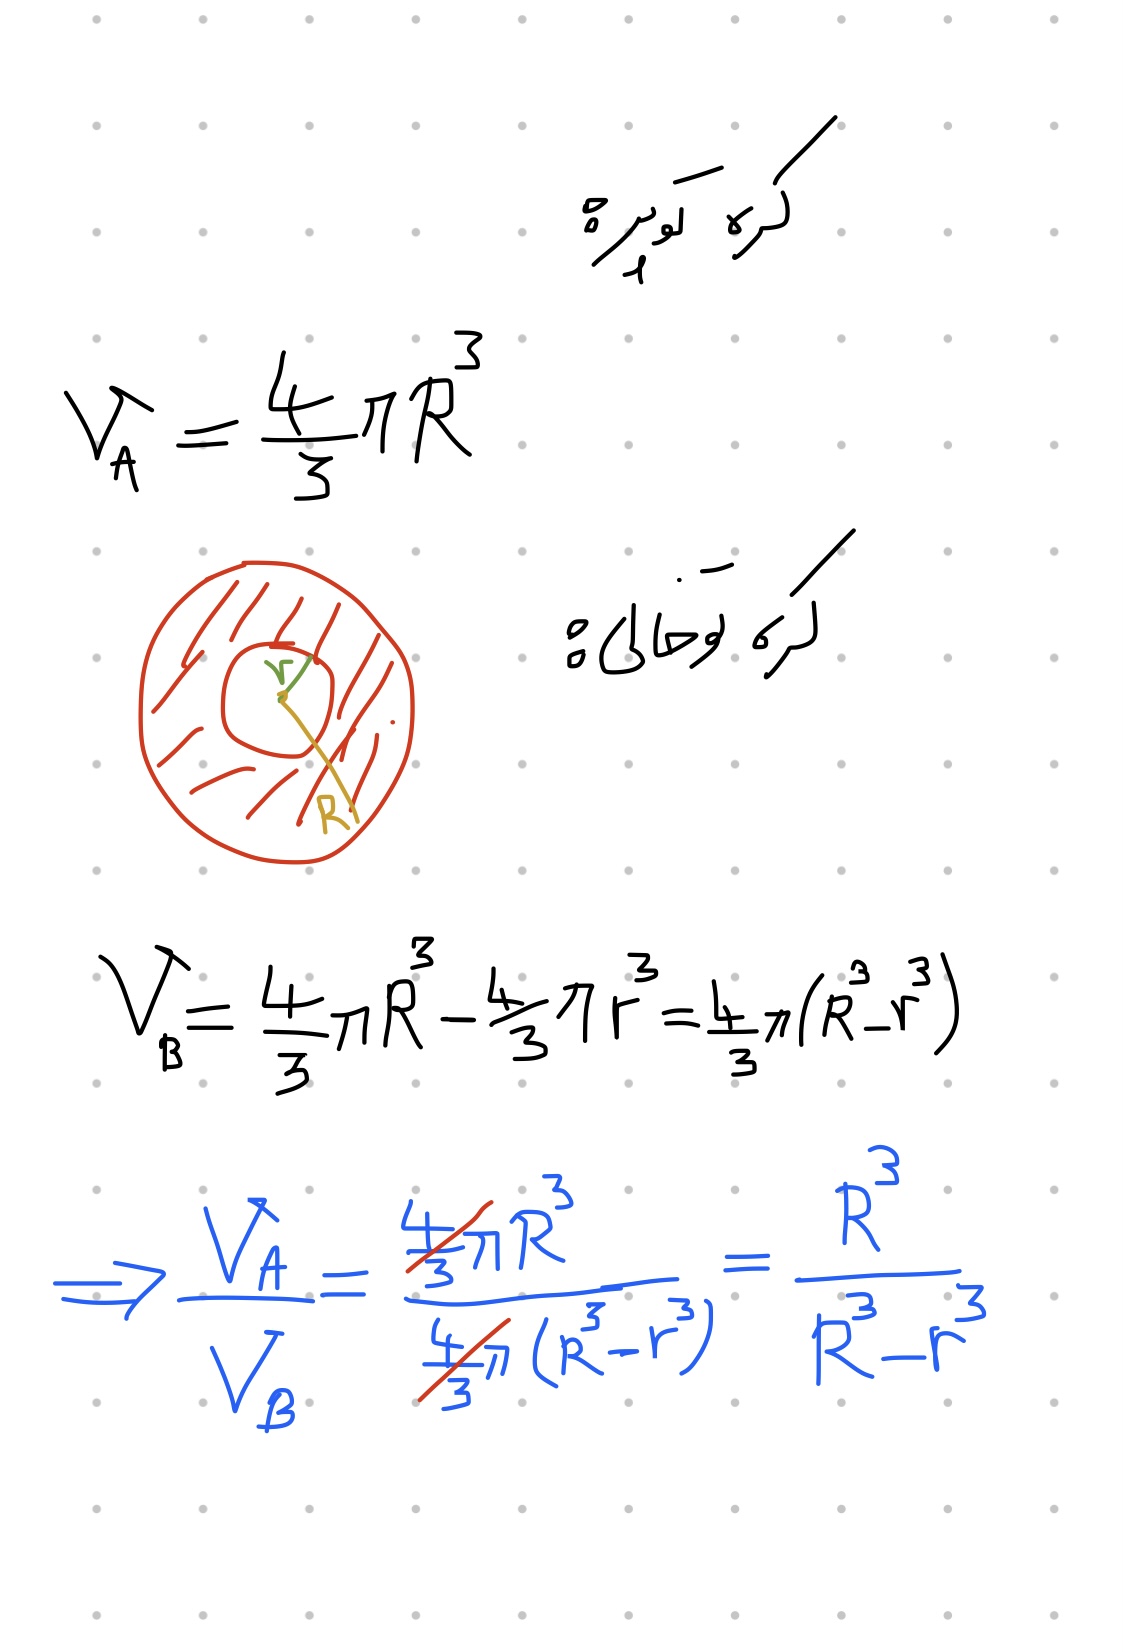 کره توپر:
V_A = 4/3 πR³
کره توخالی:
r
R
V_B = 4/3 πR³ − 4/3 πr³ = 4/3 π(R³ − r³)
⇒ V_A/V_B = (4/3 πR³)/(4/3 π(R³ − r³)) = R³/(R³ − r³)